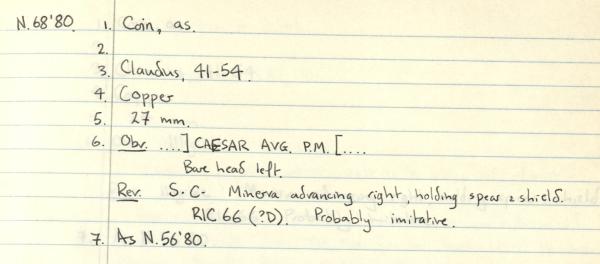 N.68'80. 1. Coin, as.
2.
3. Claudius, 41-54.
4. Copper
5. 27 mm.
6. Obv. ....] CAESAR AVG. P.M. [....
Bare head left.
Rev. S.C. Minerva advancing right, holding spear & shield.
RIC 66 (?D). Probably imitative.
7. As N.56'80.